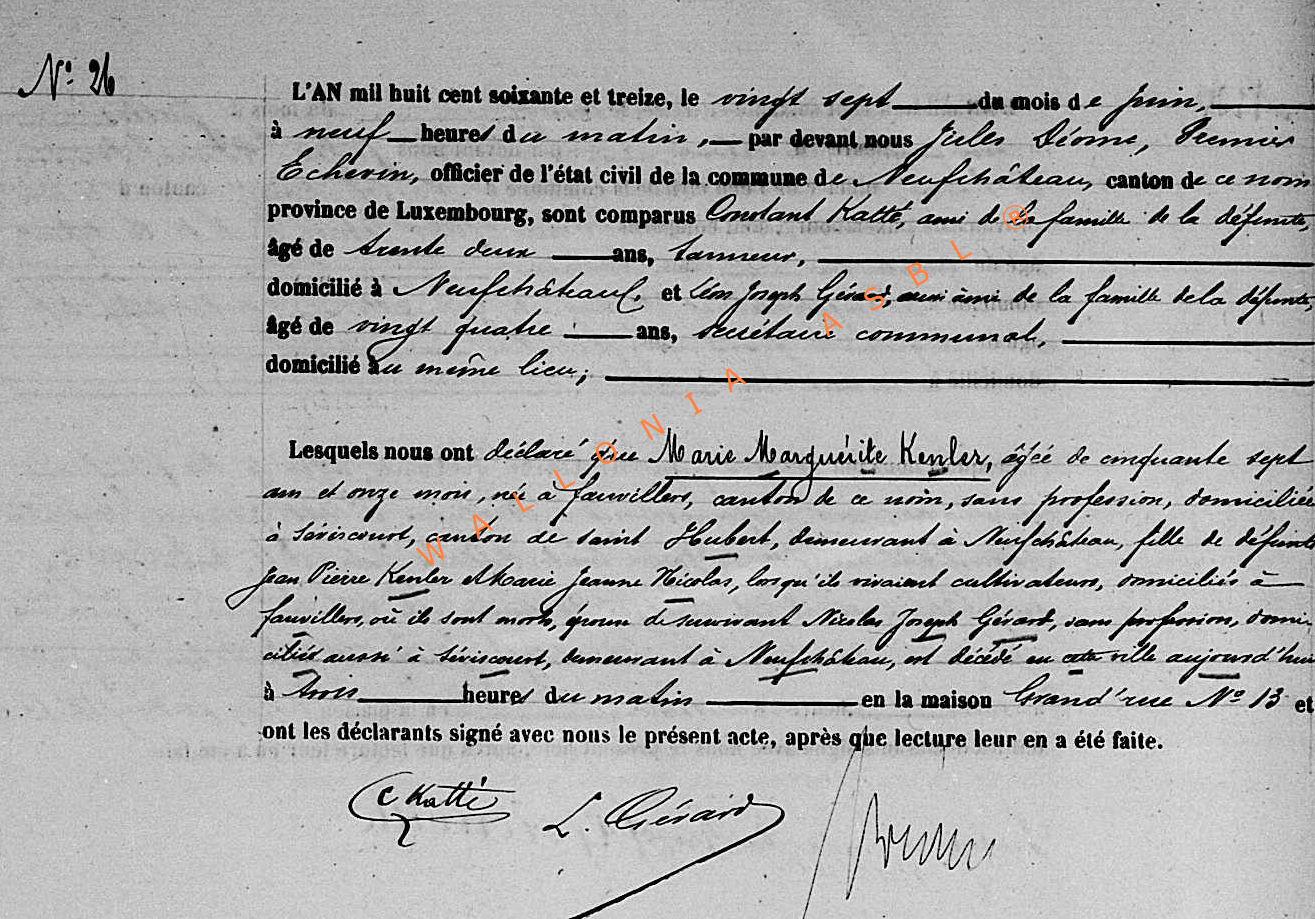 N° 26
L'AN mil huit cent soixante et treize, le vingt sept du mois de juin,
à neuf heures du matin, par devant nous Jules Déome, Premier
Echevin, officier de l'état civil de la commune de Neufchâteau, canton de ce nom
province de Luxembourg, sont comparus Constant Katté, ami de la famille de la défunte,
âgé de trente deux ans, tanneur,
domicilié à Neufchâteau, et Léon Joseph Gérard, aussi ami de la famille de la défunte,
âgé de vingt quatre ans, secrétaire communal,
domicilié au même lieu;
Lesquels nous ont déclaré que Marie Marguérite Kenler, âgée de cinquante sept
ans et onze mois, née à fauvillers, canton de ce nom, sans profession, domiciliée
à Séviscourt, canton de saint Hubert, demeurant à Neufchâteau, fille de défunts
Jean Pierre Kenler et Marie Jeanne Nicolas, lorsqu'ils vivaient cultivateurs, domiciliés à
fauvillers, où ils sont morts, épouse de survivant Nicolas Joseph Gérard, sans profession, domi-
cilié aussi à Séviscourt, demeurant à Neufchâteau, est décédé en cette ville aujourd'hui
à trois heures du matin en la maison Grand'rue N° 13 et
ont les déclarants signé avec nous le présent acte, après que lecture leur en a été faite.
C Katté L. Gérard
WALLONIA ASBL ®